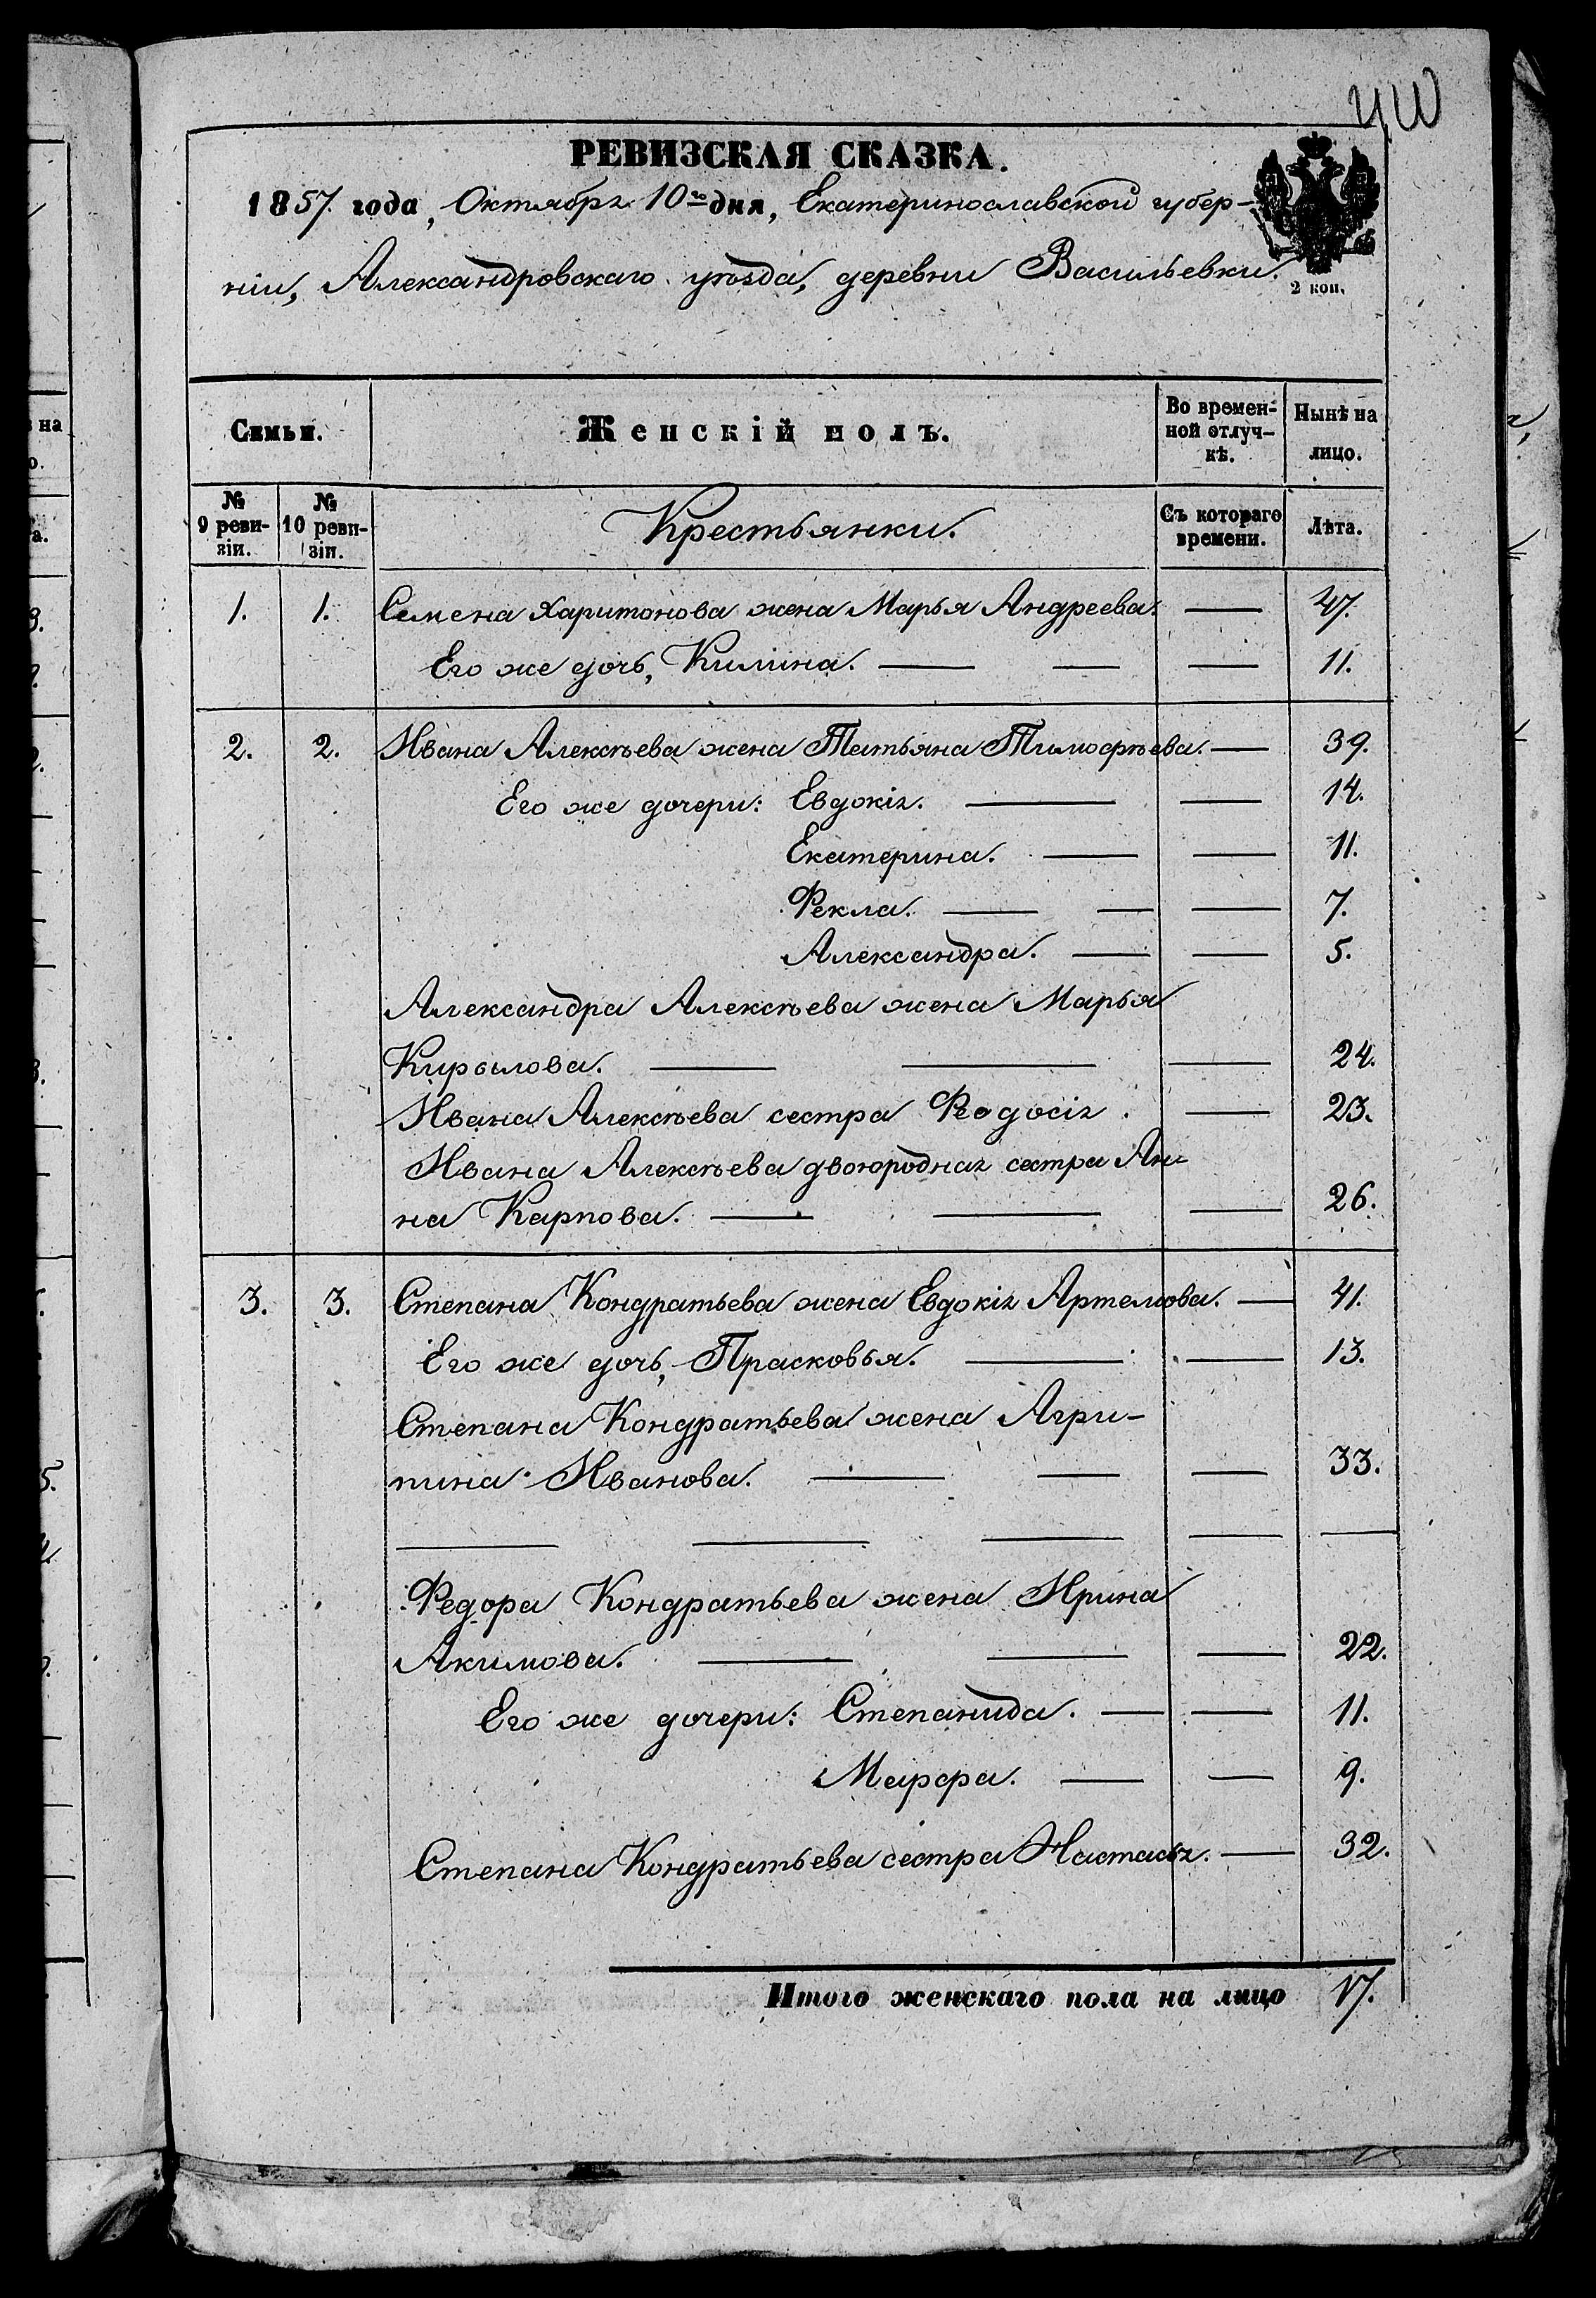 РЕВИЗСКАЯ СКАЗКА.
1857 года, Октября 10го дня, Екатеринославской губер-
ніи, Александровскаго уѣзда, деревни Васильевки.
2 коп.
Семьи.
Женскій полъ.
Во времен-
ной отлуч-
кѣ.
Нынѣ на
лицо.
№
9 реви-
зіи.
№
10 реви-
зіи.
Крестьянки.
Съ котораго
времени.
Лѣта.
1. 1. Семена Харитонова жена Марья Андреева. — 47.
Его же дочь, Килина. — — — 11.
2. 2. Ивана Алексѣева жена Татьяна Тимофѣева. — 39.
Его же дочери: Евдокія. — — 14.
Екатерина. — — 11.
Фекла. — — — 7.
Александра. — — 5.
Александра Алексѣева жена Марья
Кирылова. — — — 24.
Ивана Алексѣева сестра Феодосія. — 23.
Ивана Алексѣева двоюродная сестра Ан-
на Карпова. — — — 26.
3. 3. Степана Кондратьева жена Евдокія Артемова. — 41.
Его же дочь, Прасковья. — — 13.
Степана Кондратьева жена Агри-
пина Иванова. — — — 33.
— — — — —
Федора Кондратьева жена Ирина
Акимова. — — — 22.
Его же дочери: Степанида. — — 11.
Марфа. — — 9.
Степана Кондратьева сестра Настасья. — 32.
Итого женскаго пола на лицо 17.